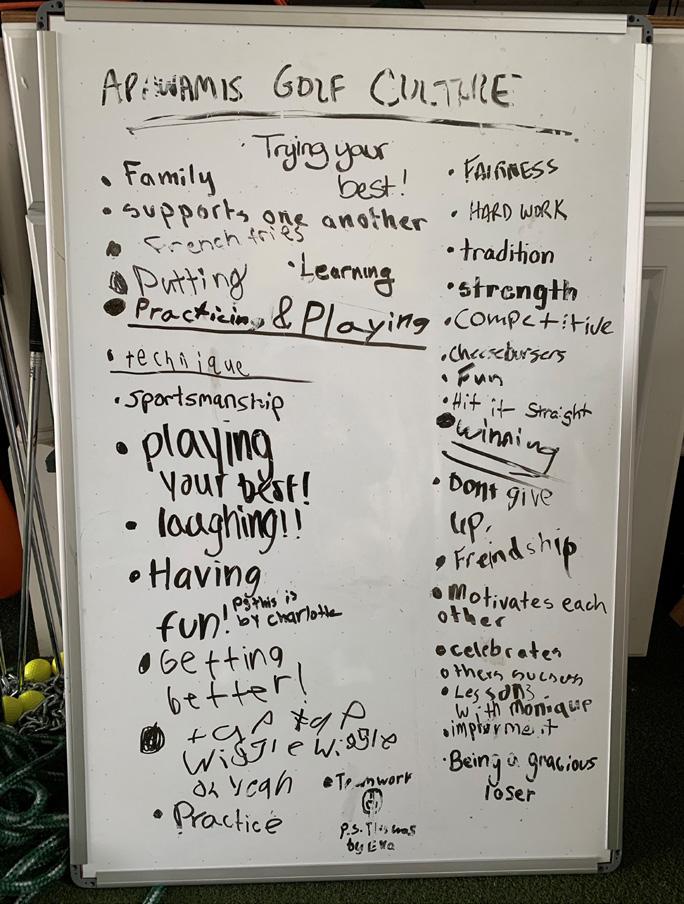 APAWAMIS GOLF CULTURE
• Trying your
best!
• Family
• supports one another
• French fries
• Putting
• Learning
• Practicing & Playing
• technique
• Sportsmanship
• playing
your best!
• laughing!!
• Having
fun! Ps this is
by charlotte
• Getting
better!
• tap tap
wiggle wiggle
oh yeah
• Practice
• Teamwork
P.S. This was
by Eva
• FAIRNESS
• HARD WORK
• tradition
• strength
• Competitive
• cheeseburgers
• Fun
• Hit it straight
• Winning
• Dont give
up.
• Freindship
• Motivates each
other
• celebrates
others sucsess
• Lessons
with monique
• imporment
• Being a gracious
loser